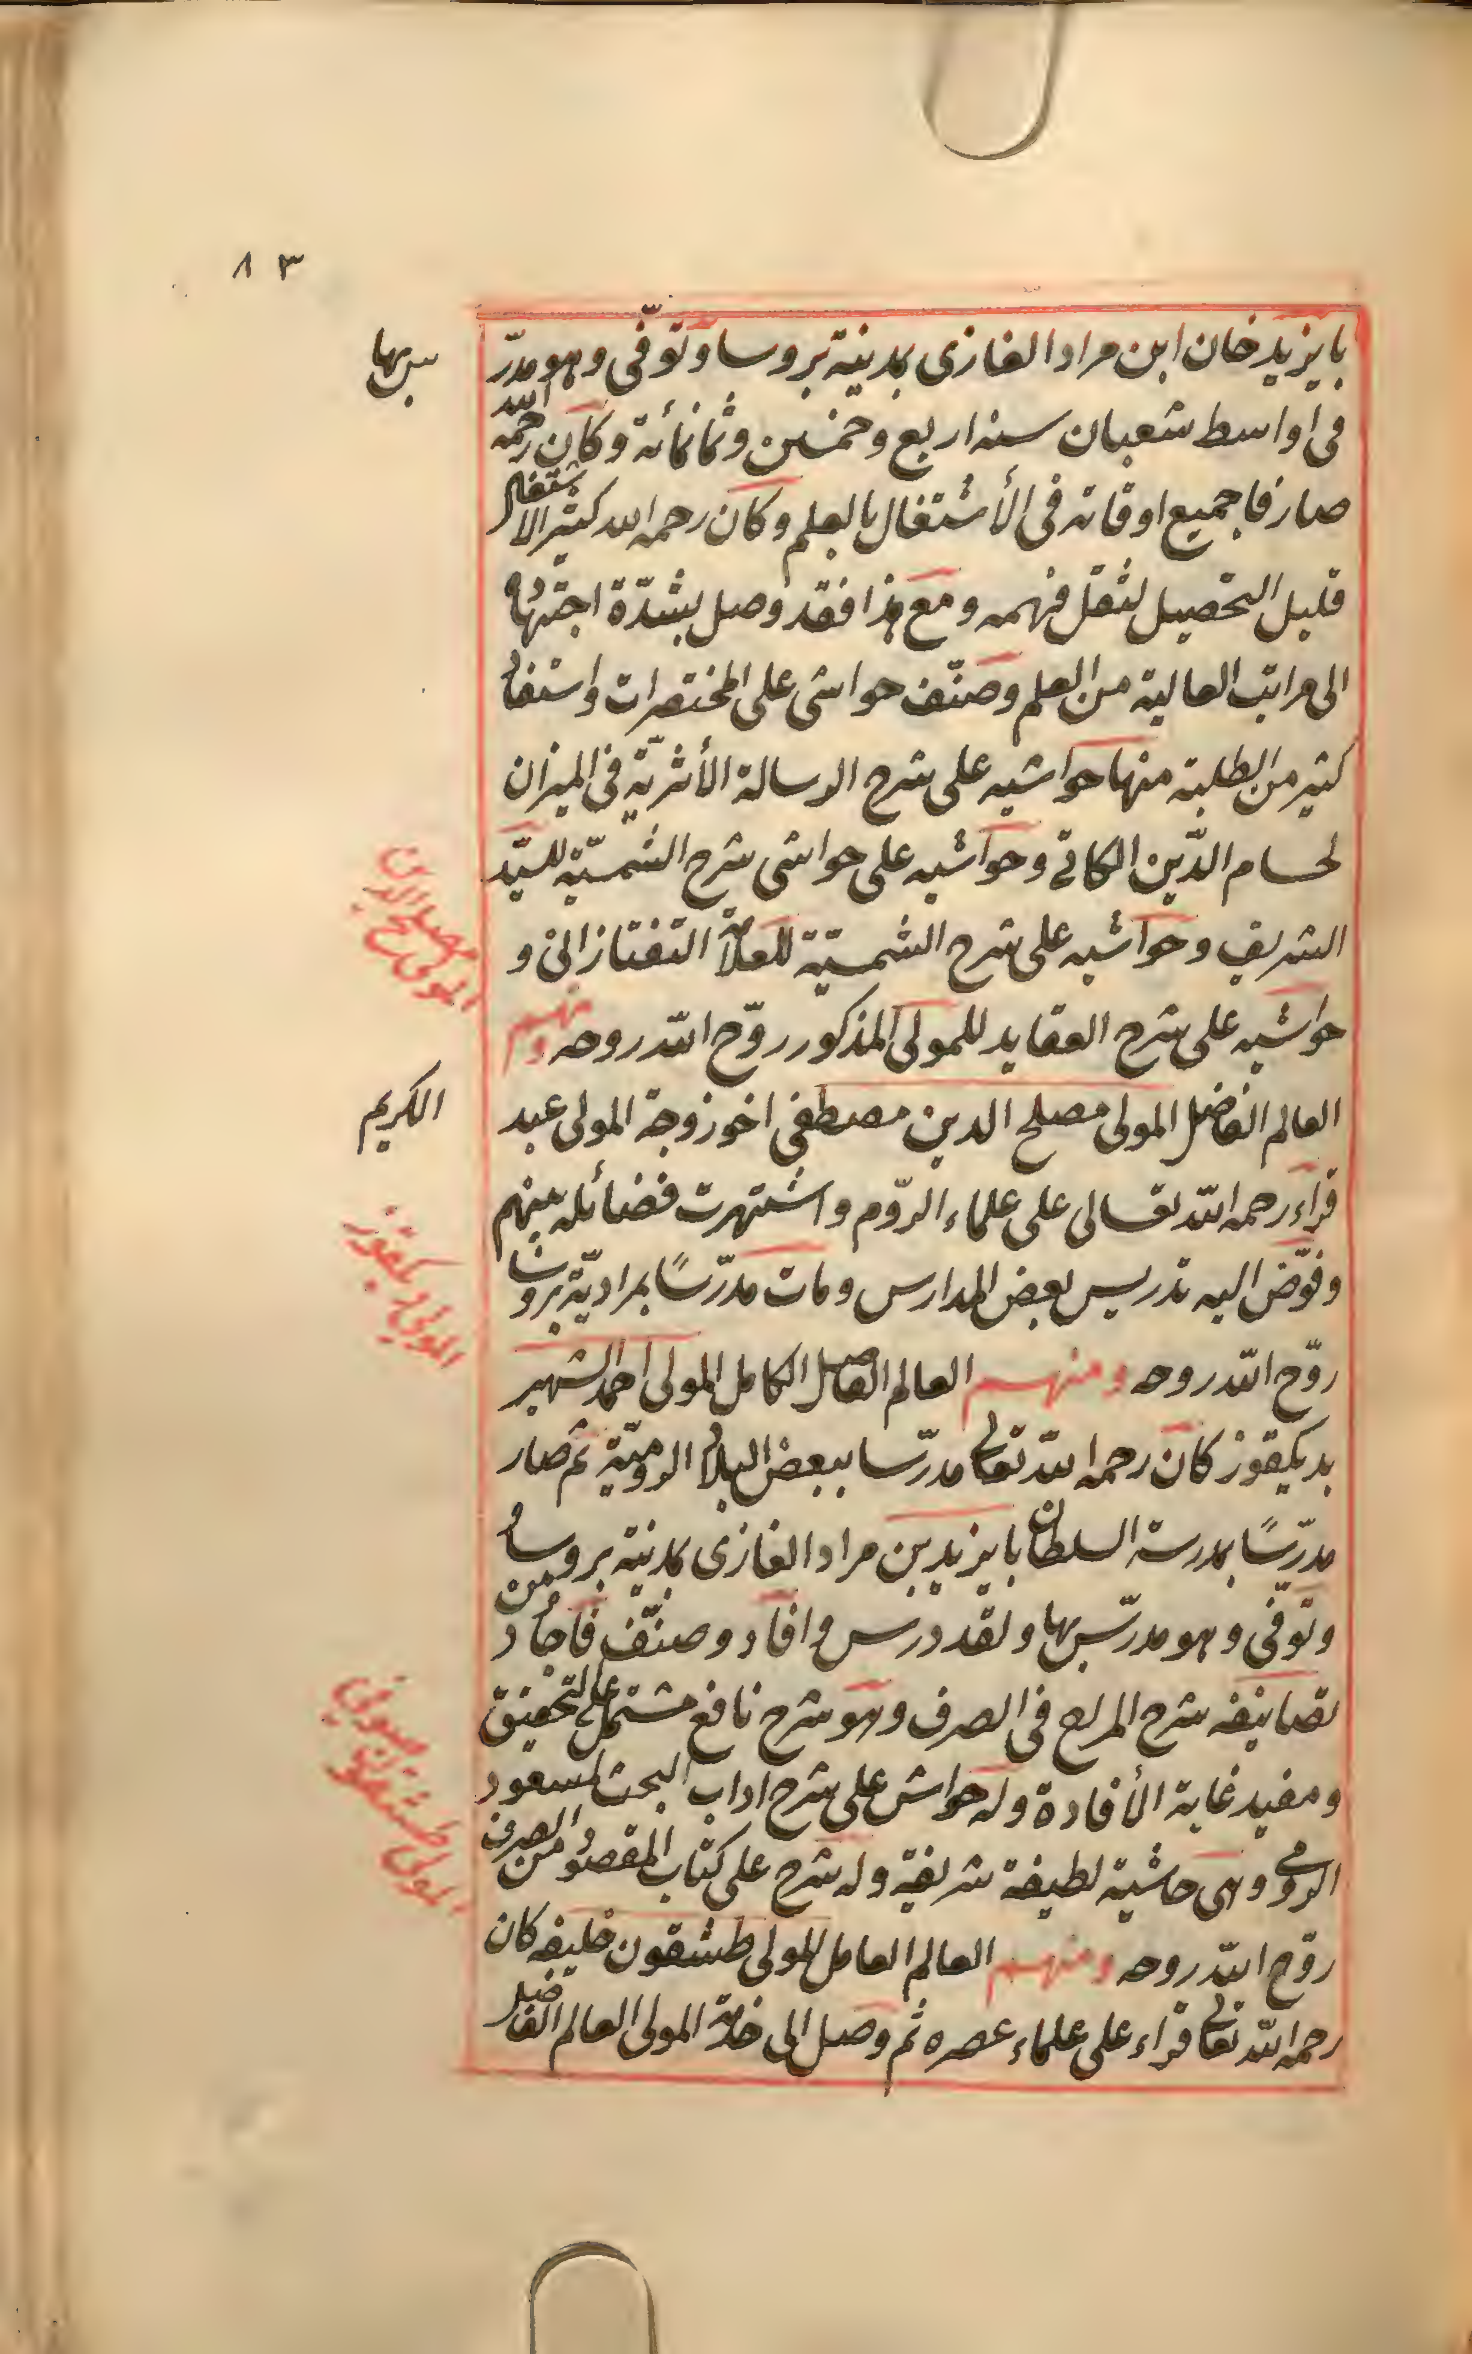 ٨٣
بايزيد خان ابن مراد الغازى بمدينة بروسا وتوفّى وهو مدرّ
س بها
فى اواسط شعبان سنه اربع وخمسين وثمانمأئة وكان رحمه الله
صارفا جميع اوقاته فى الأشتغال بالعلم وكان رحمه الله كثير الاشتغال
قليل التحصيل لثقل فهمه ومع هذا فقد وصل بشدّة اجتهاده
الى مراتب العالية من العلم وصنّف حواشى على المختصرات واستفاد
كثير من الطلبة منها حواشيه على شرح الرسالة الأثريّة فى الميزان
لحسام الدّين الكاتى وحواشيه على حواشى شرح الشمسيّة للسيّد
الشريف وحواشيه على شرح الشمسيّة للعلامة التفتازانى و
حواشيه على شرح العقايد للمولى المذكور روّح الله روحه ومنهم
المولى مصلح الدين
العالم الفاضل المولى مصلح الدين مصطفى اخو زوجة المولى عبد
الكريم
قراء رحمه الله تعالى على علماء الرّوم واشتهرت فضائله بينهم
وفوّض اليه تدريس بعض المدارس ومات مدرّسًا بمراديّة بروسا
روّح الله روحه ومنهم العالم الفاضل الكامل المولى احمد الشهير
المولى ديكقوز
بديكقوز كان رحمه الله تعالى مدرّسا ببعض البلاد الروميّة ثم صار
مدرّسًا بمدرسة السلطان بايزيد بن مراد الغازى بمدنية بروسا
وتوفّى وهو مدرّس بها ولقد درس وافاد وصنّف فأجاد ومن
تصانيفه شرح المراح فى الصرف وهو شرح نافع مشتمل على التحقيق
ومفيد غاية الأفادة وله حواش على شرح اداب البحث لمسعود
الرومى وهى حاشية لطيفة شريفة وله شرح على كتاب المقصود من الصرف
روّح الله روحه ومنهم العالم العامل المولى طشقون خليفه كان
المولى طشغون
رحمه الله تعالى قراء على علماء عصره ثم وصل الى خدمة المولى العالم الفاضل